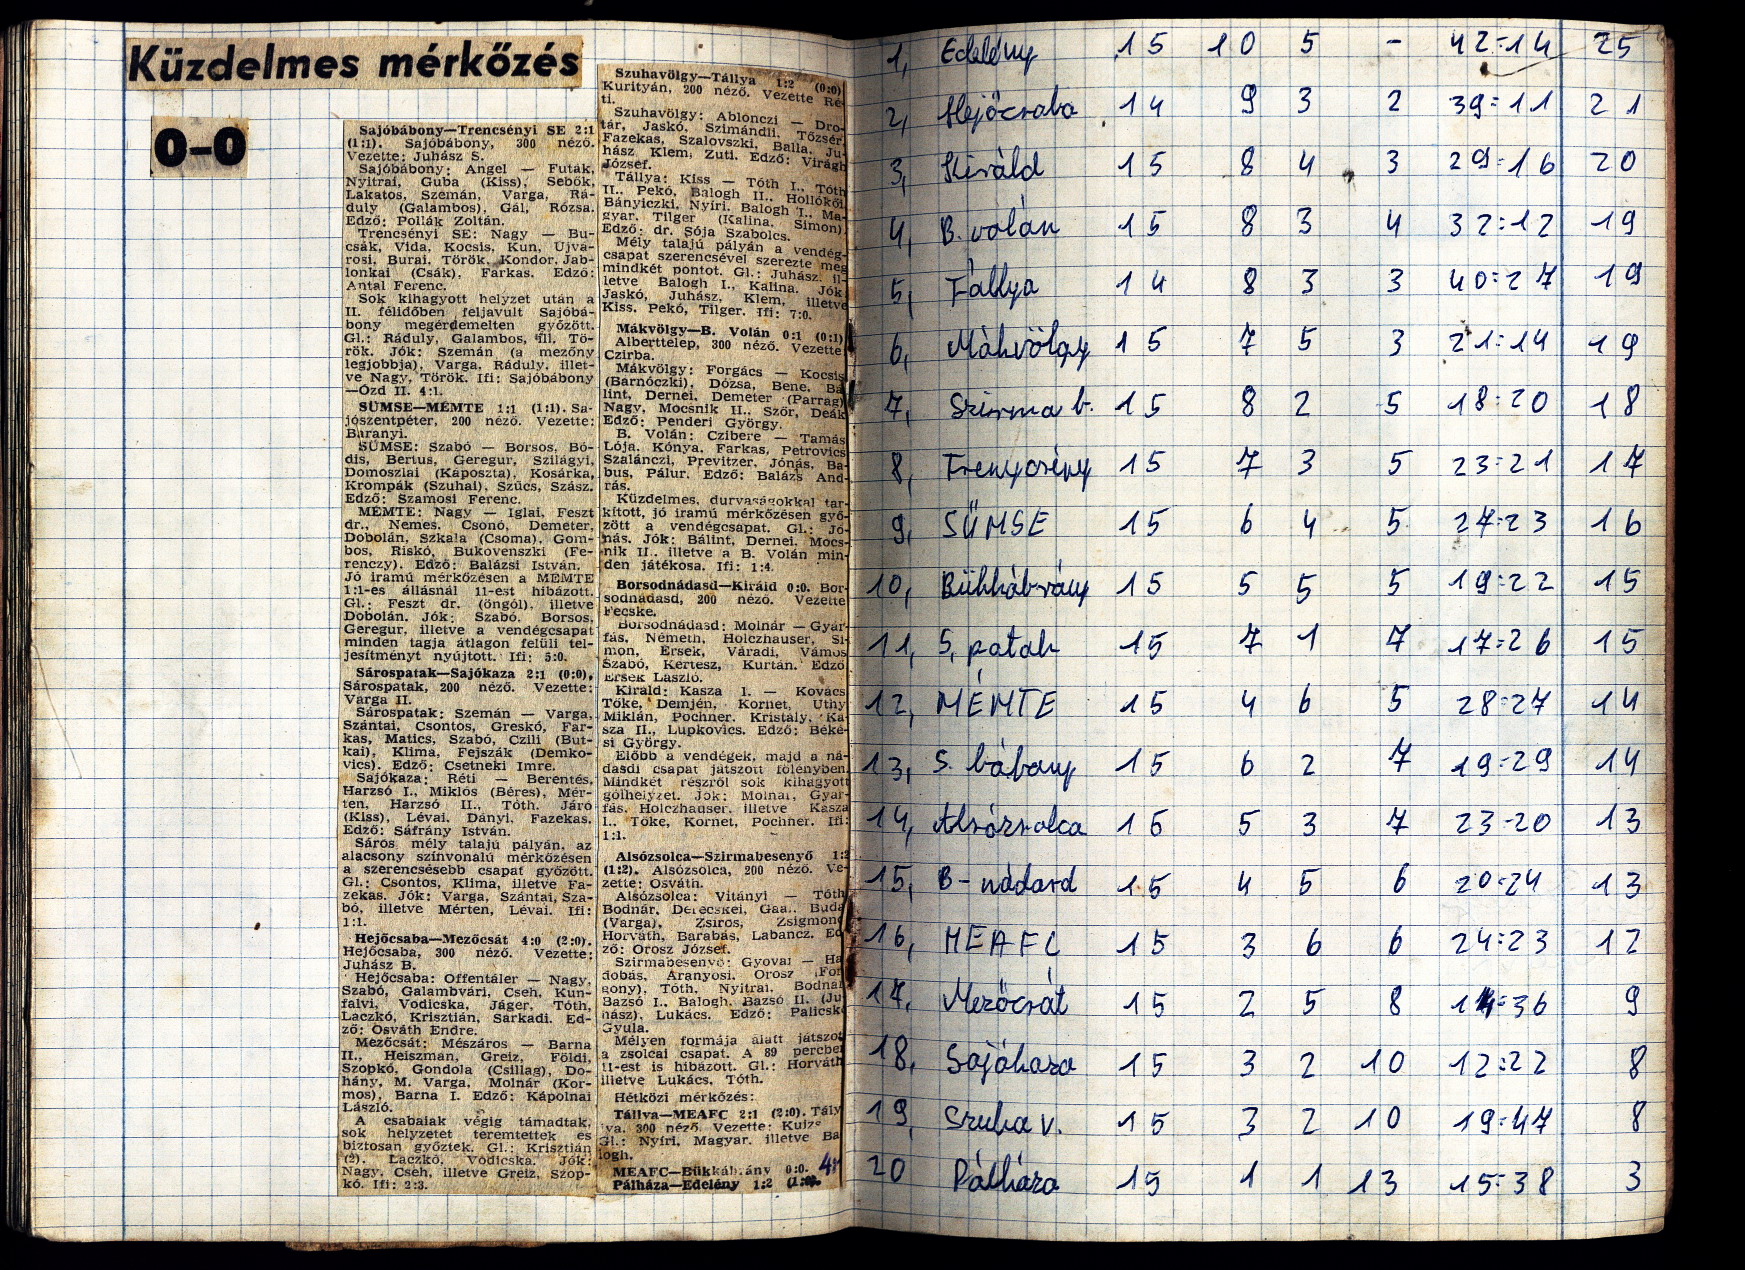 Küzdelmes mérkőzés
0-0
Sajóbábony—Trencsényi SE 2:1
(1:1). Sajóbábony, 300 néző.
Vezette: Juhász S.
Sajóbábony: Angel — Futák,
Nyitrai, Guba (Kiss), Sebők,
Lakatos, Szemán, Varga, Rá-
duly (Galambos), Gál, Rózsa.
Edző: Pollák Zoltán.
Trencsényi SE: Nagy — Bu-
csák, Vida, Kocsis, Kun, Ujvá-
rosi, Burai, Török, Kondor, Jab-
lonkai (Csák), Farkas. Edző:
Antal Ferenc.
Sok kihagyott helyzet után a
II. félidőben feljavult Sajóbá-
bony megérdemelten győzött.
Gl.: Ráduly, Galambos, ill. Tö-
rök. Jók: Szemán (a mezőny
legjobbja), Varga, Ráduly, illet-
ve Nagy, Török. Ifi: Sajóbábony
—Ózd II. 4:1.
SÜMSE—MÉMTE 1:1 (1:1). Sa-
jószentpéter, 200 néző. Vezette:
Baranyi.
SÜMSE: Szabó — Borsos, Bó-
dis, Bertus, Geregur, Szilágyi,
Domoszlai (Káposzta), Kosárka,
Krompák (Szuhai), Szűcs, Szász.
Edző: Szamosi Ferenc.
MÉMTE: Nagy — Iglai, Feszt
dr., Nemes, Csonó, Demeter,
Dobolán, Szkala (Csoma), Gom-
bos, Riskó, Bukovenszki (Fe-
renczy). Edző: Balázsi István.
Jó iramú mérkőzésen a MÉMTE
1:1-es állásnál 11-est hibázott.
Gl.: Feszt dr. (öngól), illetve
Dobolán. Jók: Szabó, Borsos,
Geregur, illetve a vendégcsapat
minden tagja átlagon felüli tel-
jesítményt nyújtott. Ifi: 5:0.
Sárospatak—Sajókaza 2:1 (0:0).
Sárospatak, 200 néző. Vezette:
Varga II.
Sárospatak: Szemán — Varga,
Szántai, Csontos, Greskó, Far-
kas, Matics, Szabó, Czili (But-
kai), Klima, Fejszák (Demko-
vics). Edző: Csetneki Imre.
Sajókaza: Réti — Berentés,
Harzsó I., Miklós (Béres), Mér-
ten, Harzsó II., Tóth, Járó
(Kiss), Lévai, Dányi, Fazekas.
Edző: Sáfrány István.
Sáros, mély talajú pályán, az
alacsony színvonalú mérkőzésen
a szerencsésebb csapat győzött.
Gl.: Csontos, Klima, illetve Fa-
zekas. Jók: Varga, Szántai, Sza-
bó, illetve Mérten, Lévai. Ifi:
1:1.
Hejőcsaba—Mezőcsát 4:0 (2:0).
Hejőcsaba, 300 néző. Vezette:
Juhász B.
Hejőcsaba: Offentáler — Nagy,
Szabó, Galambvári, Cseh, Kun-
falvi, Vodicska, Jáger, Tóth,
Laczkó, Krisztián, Sarkadi. Ed-
ző: Osváth Endre.
Mezőcsát: Mészáros — Barna
II., Heiszman, Greiz, Földi,
Szopkó, Gondola (Csillag), Do-
hány, M. Varga, Molnár (Kor-
mos), Barna I. Edző: Kápolnai
László.
A csabaiak végig támadtak,
sok helyzetet teremtettek és
biztosan győztek. Gl.: Krisztián
(2), Laczkó, Vodicska. Jók:
Nagy, Cseh, illetve Greiz, Szop-
kó. Ifi: 2:3.
Szuhavölgy—Tállya 1:2 (0:0)
Kurityán, 200 néző. Vezette Ré-
ti.
Szuhavölgy: Ablonczi — Dro-
tár, Jaskó, Szimándli, Tőzsér,
Fazekas, Szalovszki, Balla, Ju-
hász Klem, Zuti. Edző: Virágh
József.
Tállya: Kiss — Tóth I., Tóth
II., Pekó, Balogh II., Hollókői,
Bányiczki, Nyíri, Balogh I., Ma-
gyar, Tilger (Kalina, Simon).
Edző: dr. Sója Szabolcs.
Mély talajú pályán a vendég-
csapat szerencsével szerezte meg
mindkét pontot. Gl.: Juhász il-
letve Balogh I., Kalina. Jók:
Jaskó, Juhász, Klem, illetve
Kiss, Pekó, Tilger. Ifi: 7:0.
Mákvölgy—B. Volán 0:1 (0:1)
Alberttelep, 300 néző. Vezette
Czirba.
Mákvölgy: Forgács — Kocsis
(Barnóczki), Dózsa, Bene, Bá-
lint, Dernei, Demeter (Parrag)
Nagy, Mocsnik II., Szőr, Deák
Edző: Penderi György.
B. Volán: Czibere — Tamás
Lója, Kónya, Farkas, Petrovics
Szalánczi, Previtzer, Jónás, Ba-
bus, Pálur. Edző: Balázs And-
rás.
Küzdelmes, durvaságokkal tar-
kított, jó iramú mérkőzésen győ-
zött a vendégcsapat. Gl.: Jó-
nás. Jók: Bálint, Dernei, Mocs-
nik II., illetve a B. Volán min-
den játékosa. Ifi: 1:4.
Borsodnádasd—Királd 0:0. Bor-
sodnádasd, 200 néző. Vezette
Fecske.
Borsodnádasd: Molnár — Gyár-
fás, Németh, Holczhauser, Si-
mon, Érsek, Váradi, Vámos
Szabó, Kertész, Kurtán. Edző
Érsek László.
Királd: Kasza I. — Kovács
Tőke, Demjén, Kornet, Uthy
Miklán, Pochner, Kristály, Ka-
sza II., Lupkovics. Edző: Béké-
si György.
Előbb a vendégek, majd a ná-
dasdi csapat játszott fölényben.
Mindkét részről sok kihagyott
gólhelyzet. Jók: Molnár, Gyár-
fás, Holczhauser, illetve Kasza
I., Tőke, Kornet, Pochner. Ifi:
1:1.
Alsózsolca—Szirmabesenyő 1:2
(1:2). Alsózsolca, 200 néző. Ve-
zette: Osváth.
Alsózsolca: Vitányi — Tóth
Bodnár, Derecskei, Gaál, Buda
(Varga), Zsíros, Zsigmond
Horváth, Barabás, Labancz. Ed-
ző: Orosz József.
Szirmabesenyő: Gyovai — Ha
dobás, Aranyosi, Orosz (For
gony), Tóth, Nyitrai, Bodnár
Bazsó I., Balogh, Bazsó II. (Ju
hász), Lukács. Edző: Palicskó
Gyula.
Mélyen formája alatt játszot
a zsolcai csapat. A 89 percber
11-est is hibázott. Gl.: Horváth
illetve Lukács, Tóth.
Hétközi mérkőzés:
Tállya—MEAFC 2:1 (2:0). Tály
ya, 300 néző. Vezette:
Gl.: Nyíri, Magyar, illetve Ba
logh.
MEAFC—Bükkábrány 0:0. 4:1
Pálháza—Edelény 1:2 (1:0).
1, Edelény 15 10 5 - 42:14 25
2, Hejőcsaba 14 9 3 2 39:11 21
3, Királd 15 8 4 3 29:16 20
4, B. volán 15 8 3 4 32:12 19
5, Tállya 14 8 3 3 40:27 19
6, Mákvölgy 15 7 5 3 21:14 19
7, Szirma b. 15 8 2 5 18:20 18
8, Trencsény 15 7 3 5 23:21 17
9, SÜMSE 15 6 4 5 27:23 16
10, Bükkábrány 15 5 5 5 19:22 15
11, S. patak 15 7 1 7 17:26 15
12, MÉMTE 15 4 6 5 28:27 14
13, S. bábony 15 6 2 7 19:29 14
14, Alsózsolca 15 5 3 7 23-20 13
15, B-nádasd 15 4 5 6 20:24 13
16, MEAFC 15 3 6 6 24:23 12
17, Mezőcsát 15 2 5 8 14:36 9
18, Sajókaza 15 3 2 10 12:22 8
19, Szuha v. 15 3 2 10 19:47 8
20 Pálháza 15 1 1 13 15:38 3